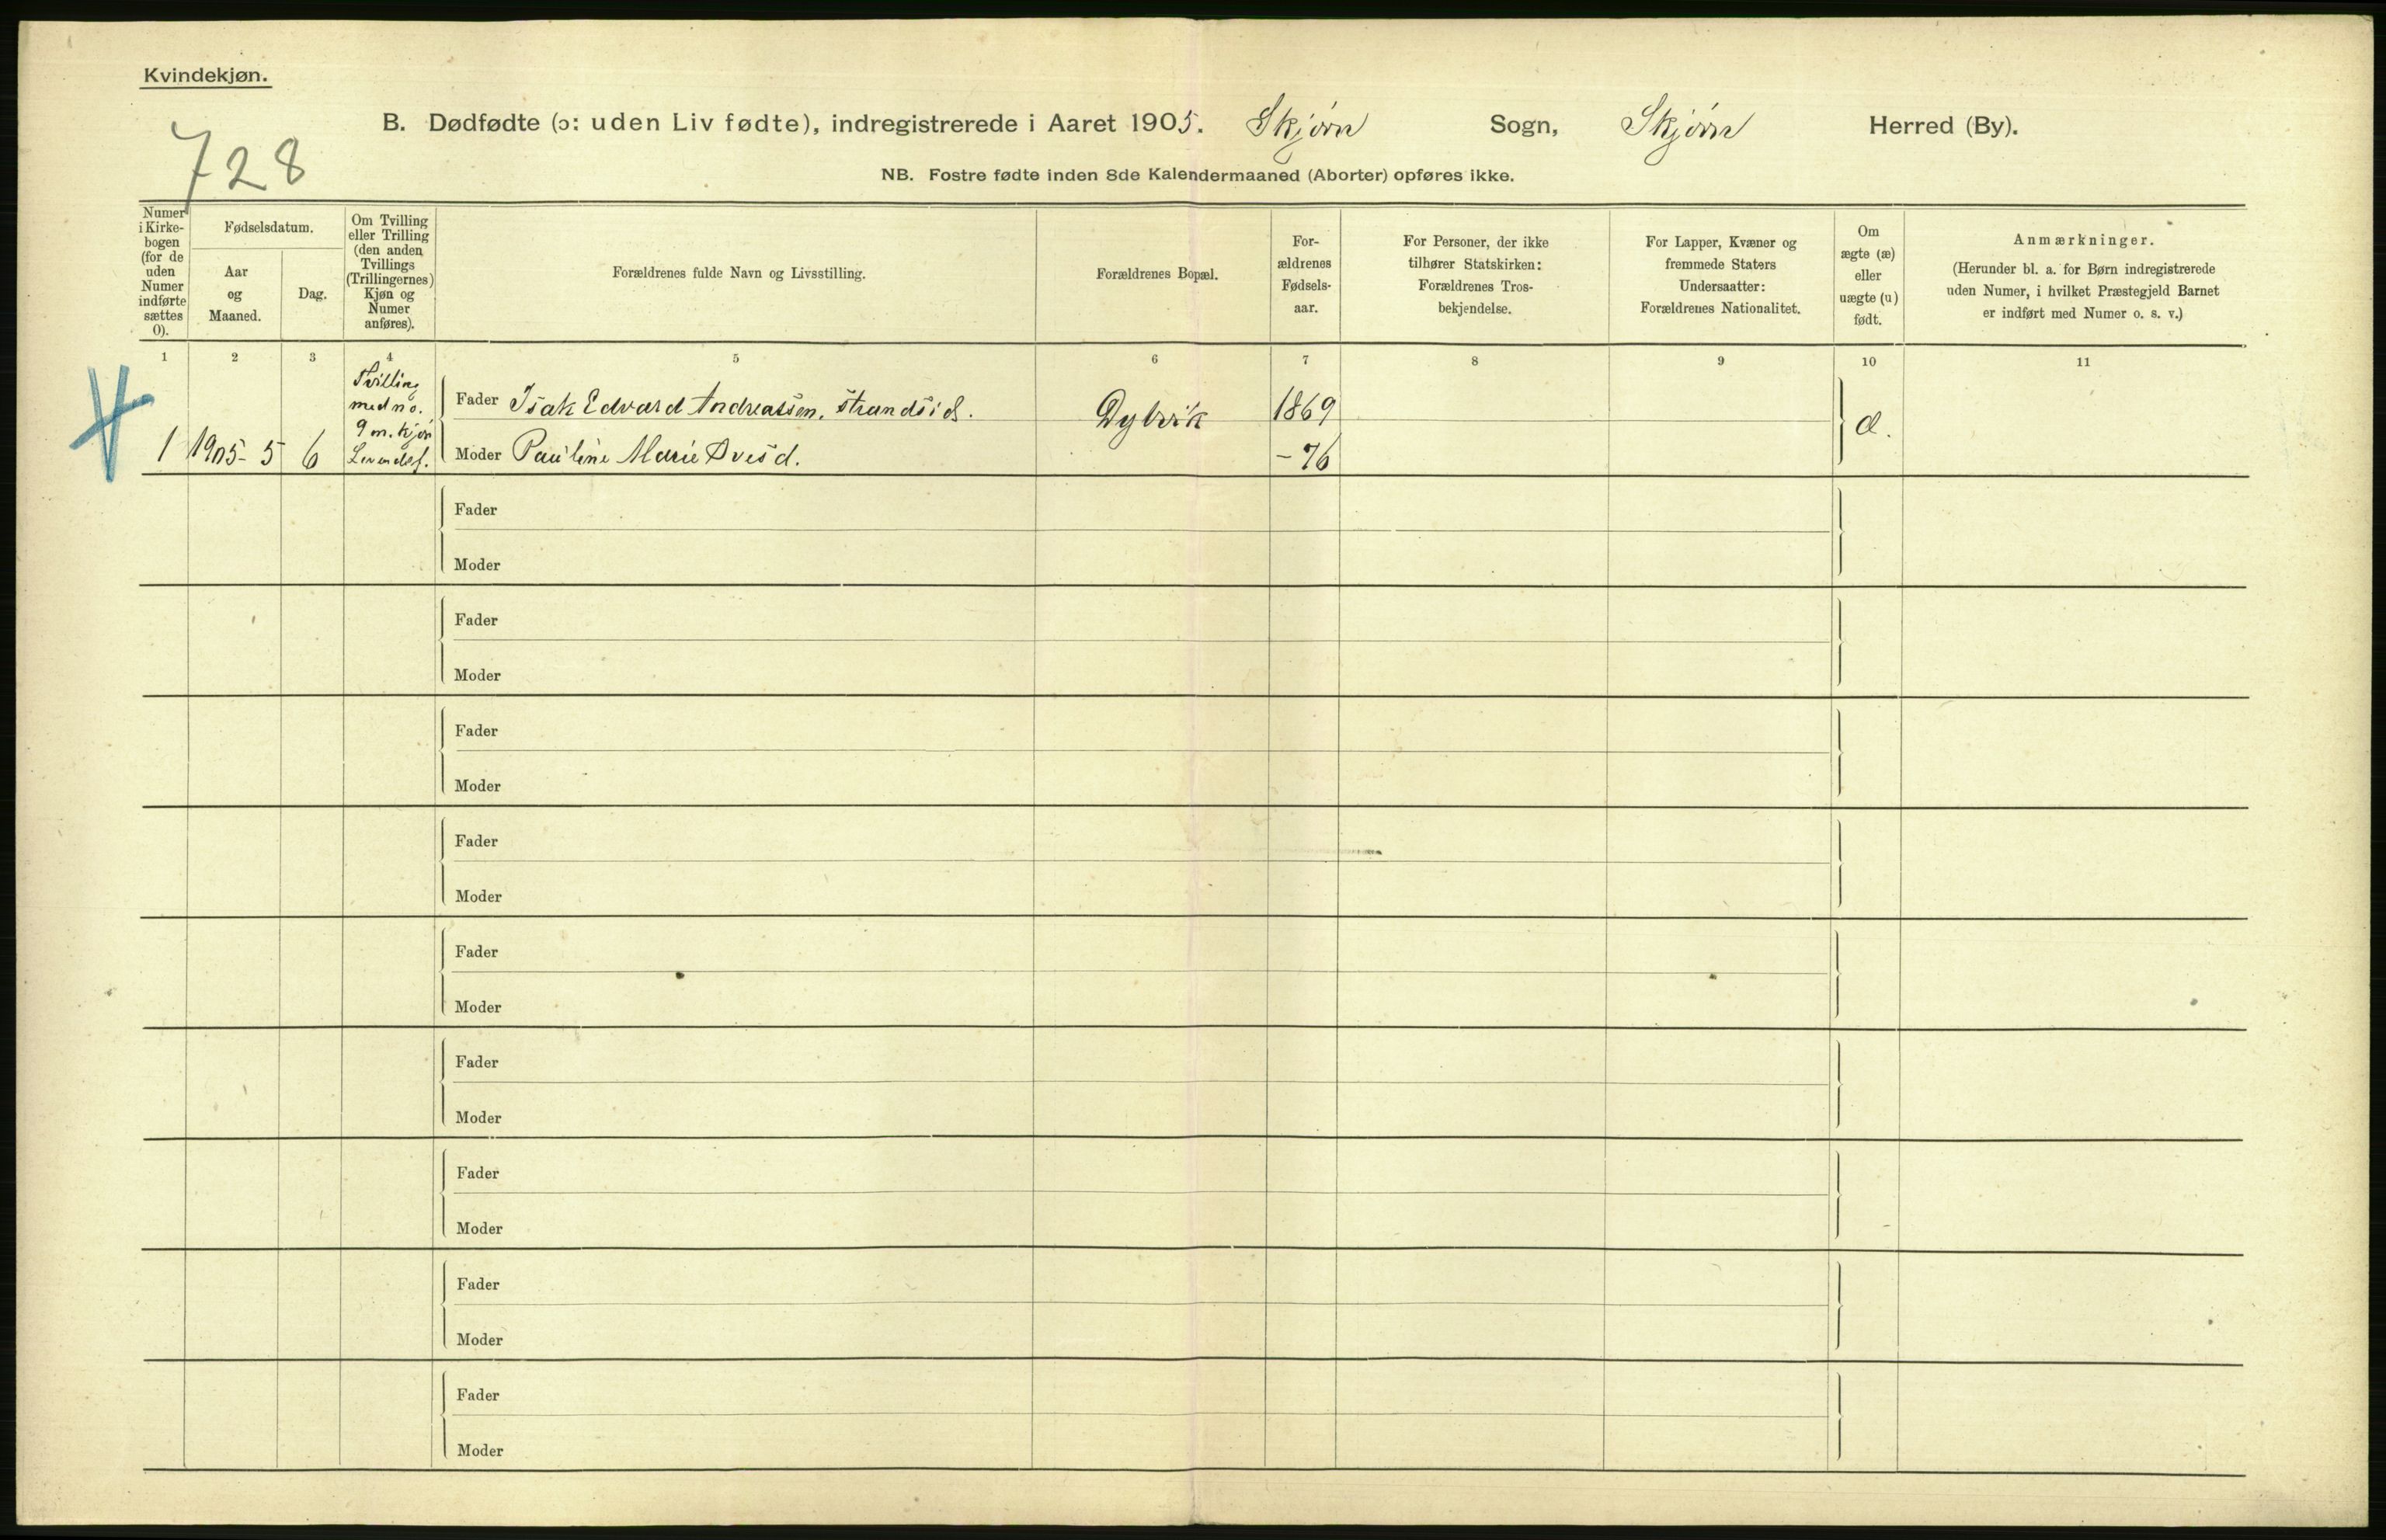 Kvindekjøn.
728
B. Dødfødte (ɔ: uden Liv fødte), indregistrerede i Aaret 1905. Skjørn Sogn, Skjørn Herred (By).
NB. Fostre fødte inden 8de Kalendermaaned (Aborter) opføres ikke.
Numer i Kirkebogen (for de uden Numer indførte sættes 0).
Fødselsdatum.
Aar og Maaned.
Dag.
Om Tvilling eller Trilling (den anden Tvillings (Trillingernes) Kjøn og Numer anføres).
Forældrenes fulde Navn og Livsstilling.
Forældrenes Bopæl.
For-ældrenes Fødsels-aar.
For Personer, der ikke tilhører Statskirken: Forældrenes Tros-bekjendelse.
For Lapper, Kvæner og fremmede Staters Undersaatter: Forældrenes Nationalitet.
Om ægte (æ) eller uægte (u) født.
Anmærkninger.
(Herunder bl. a. for Børn indregistrerede uden Numer, i hvilket Præstegjeld Barnet er indført med Numer o. s. v.)
1 2 3 4 5 6 7 8 9 10 11
Tvilling
med no.
9 m. kjøn
Levendef.
Fader Isak Edvard Andreassen, strandsid. Dybvik 1869
1 1905- 5 6 Moder Pauline Marie Ovesd. - 76
Fader
Moder
Fader
Moder
Fader
Moder
Fader
Moder
Fader
Moder
Fader
Moder
Fader
Moder
Fader
Moder
Fader
Moder